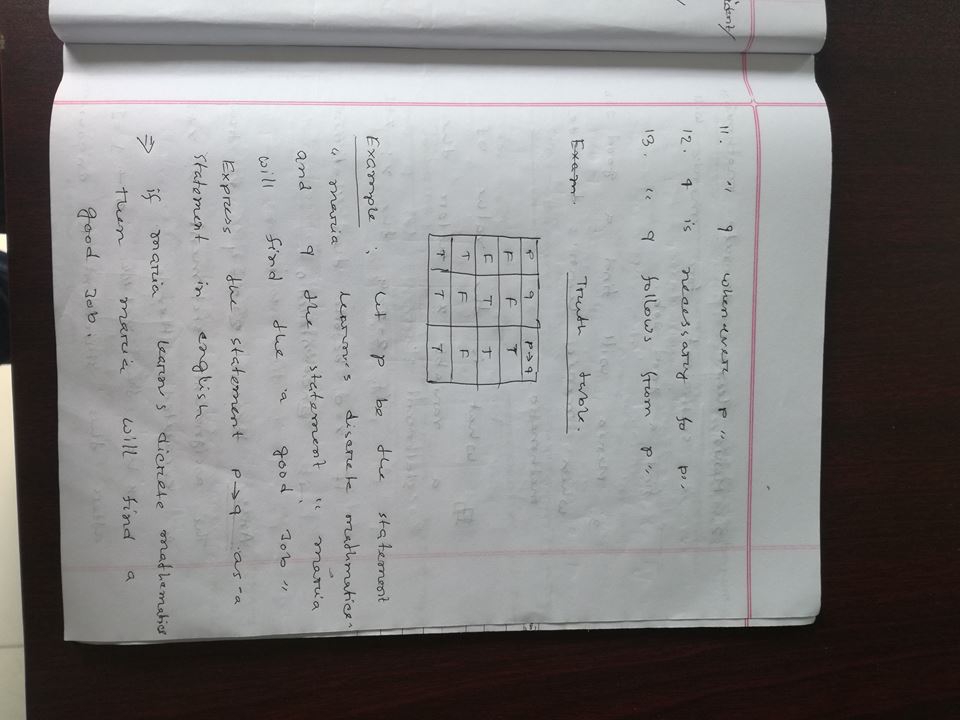 ident/
11. " q whenevere p "
12. q is necessary fo p"
13. " q follows from p "
Exam. Truth table.
P q P→q
F F T
F T T
T F F
T T T
Example : let p be the statement
" maria learn's discrete mathmatics"
and q the statement " maria
will find the a good Job "
Express the statement p→q as a
statement in english
⇒ if maria learn's dicrete mathematics
then maria will find a
good Job.